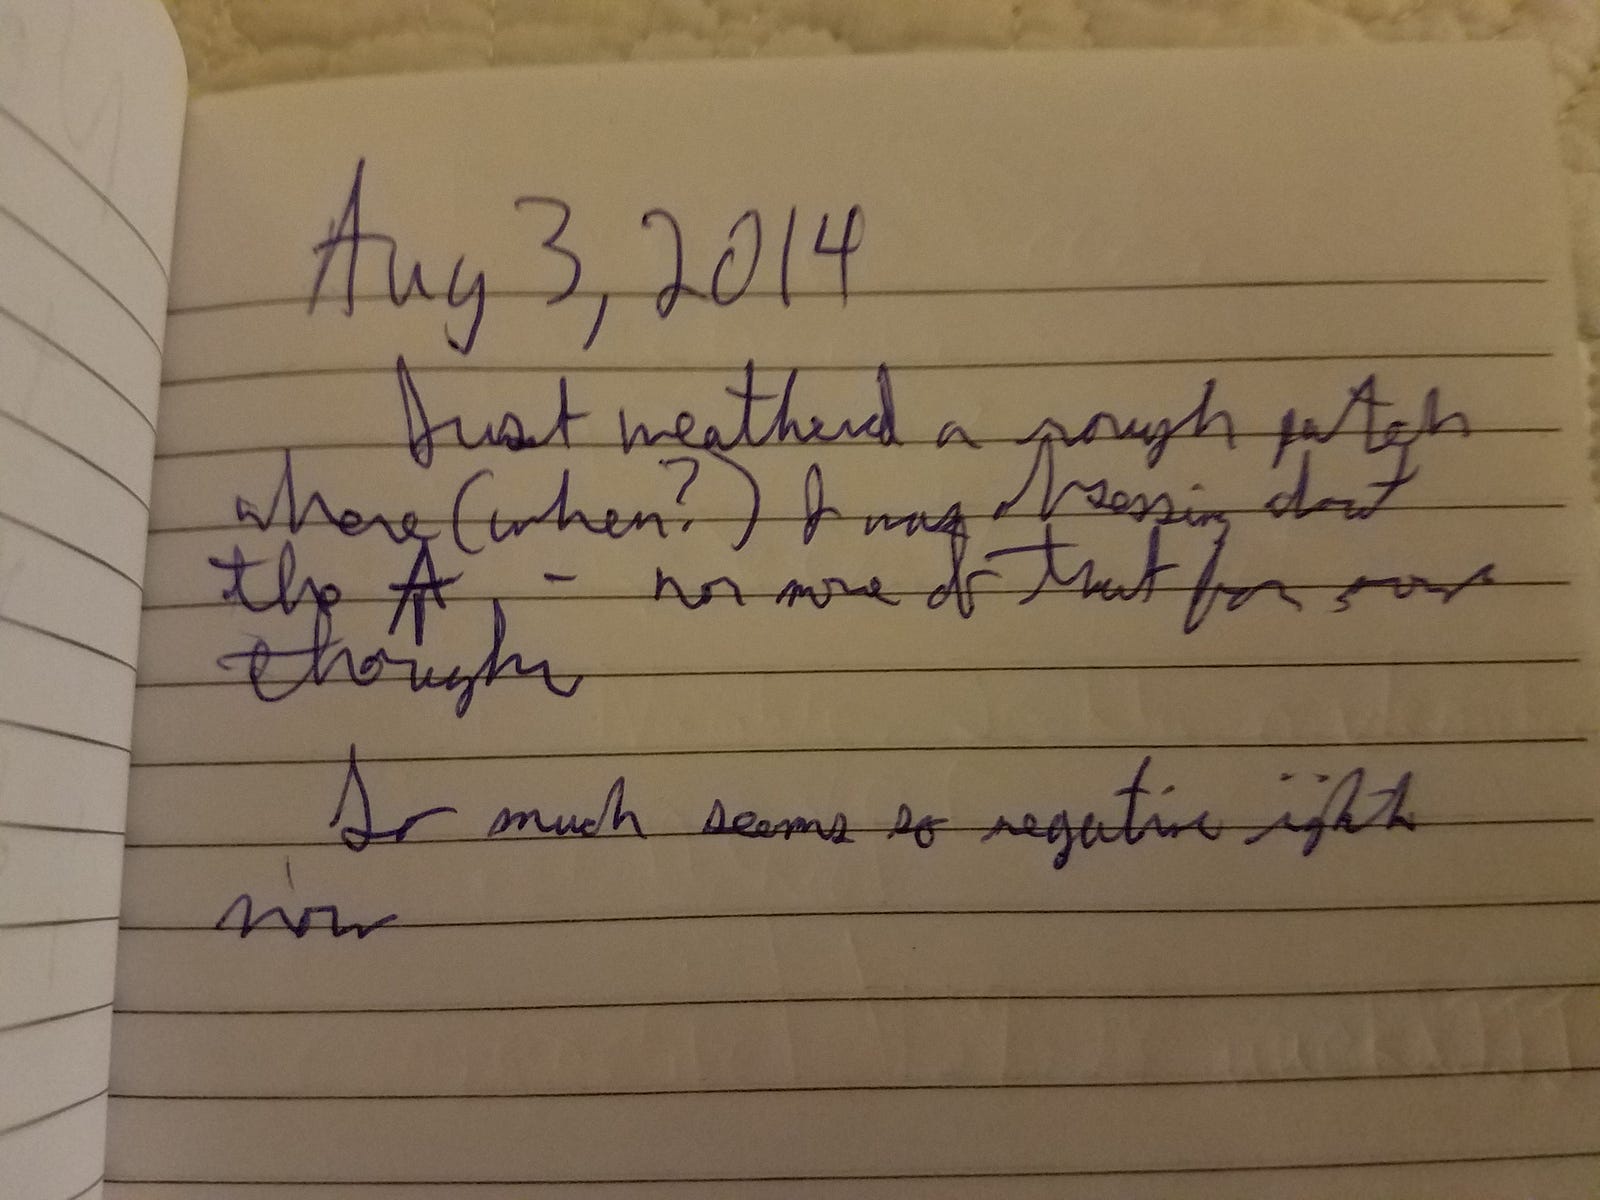 Aug 3, 2014
Just weatherd a rough patch
where (when?) I was obsessing about
the A - nor more of that for now
though
So much seems so negative right
now